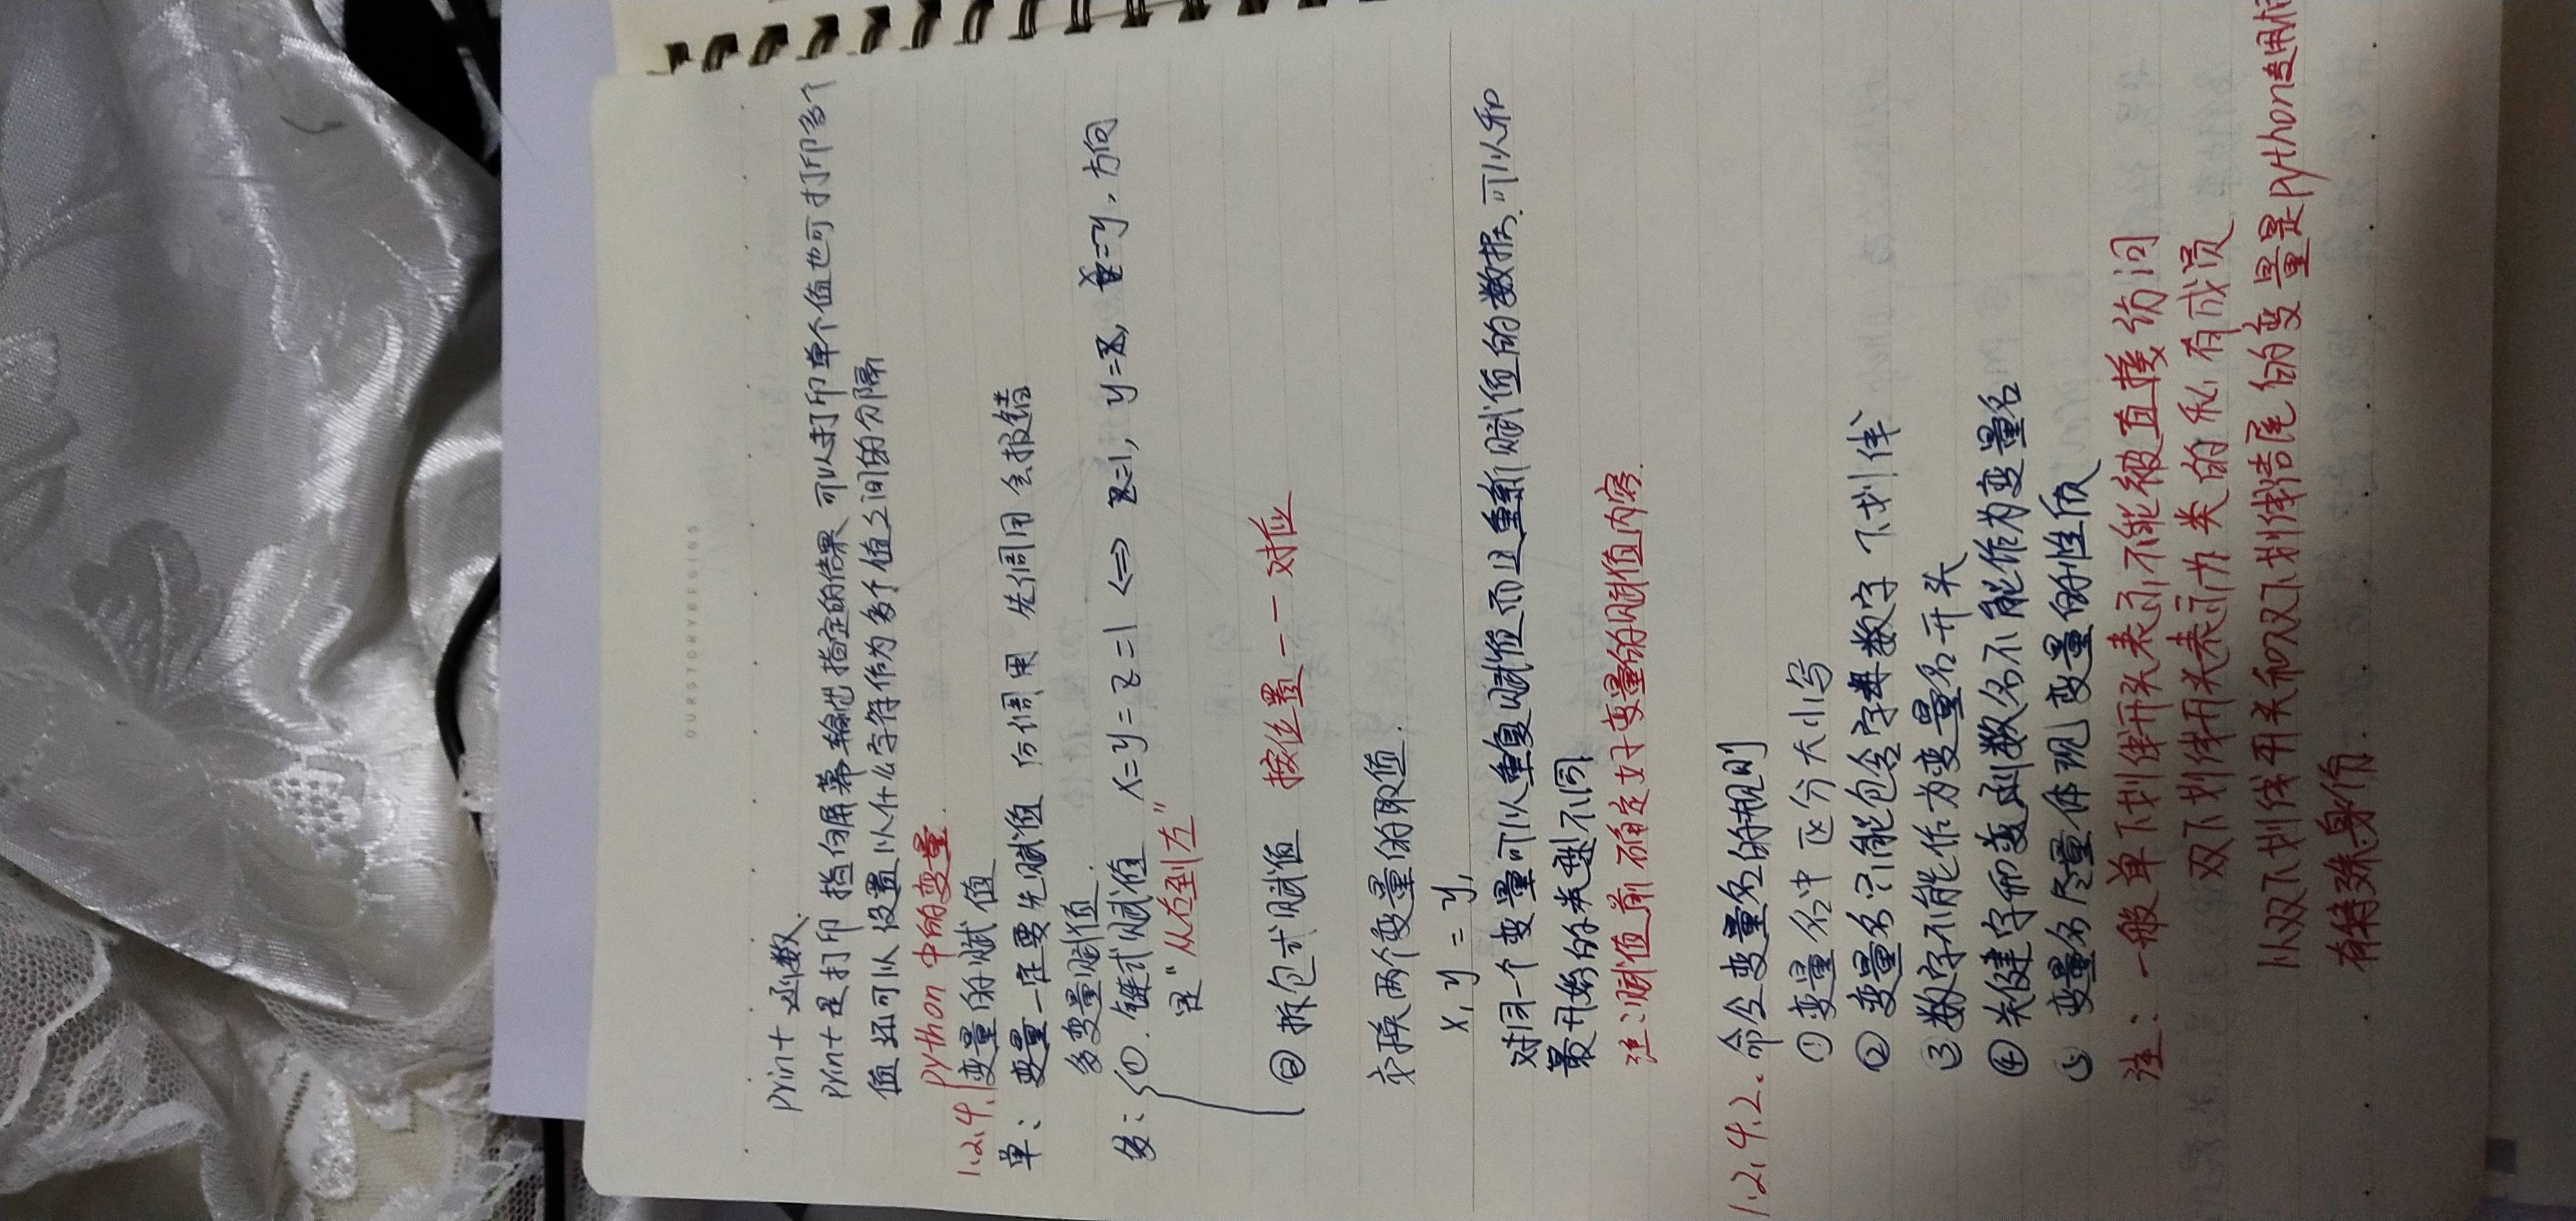 OURSTORYBEGINS
Print 函数.
Print是打印 指向屏幕输出指定的结果 可以打印单个值也可打印多个
值 还可以设置以什么字符作为多个值之间的分隔
1.2.4. Python 中的变量.
变量的赋值
单: 变量一定要先赋值 后调用 先调用会报错
多变量赋值.
多: ①. 链式赋值 x=y=z=1 <=> z=1, y=z, x=y. 方向
是"从右到左"
② 拆包式赋值 按位置一一对应
交换两个变量的取值.
x, y = y,
对同一个变量可以重复赋值而且重新赋值的数据.可以和
最开始的类型不同
注:赋值前确定好变量的赋值内容.
1.2.4.2. 命令变量名的规则
① 变量名中区分大小写
② 变量名只能包含字母数字 下划线
③ 数字不能作为变量名开头
④ 关健字和函数名不能作为变量名
⑤ 变量名尽量体现变量的性质
注: 一般单下划线开头表示不能被直接访问
双下划线开头表示为类的私有成员
以双下划线开头和双下划线结尾的变量是Python专用标
有特殊身份.